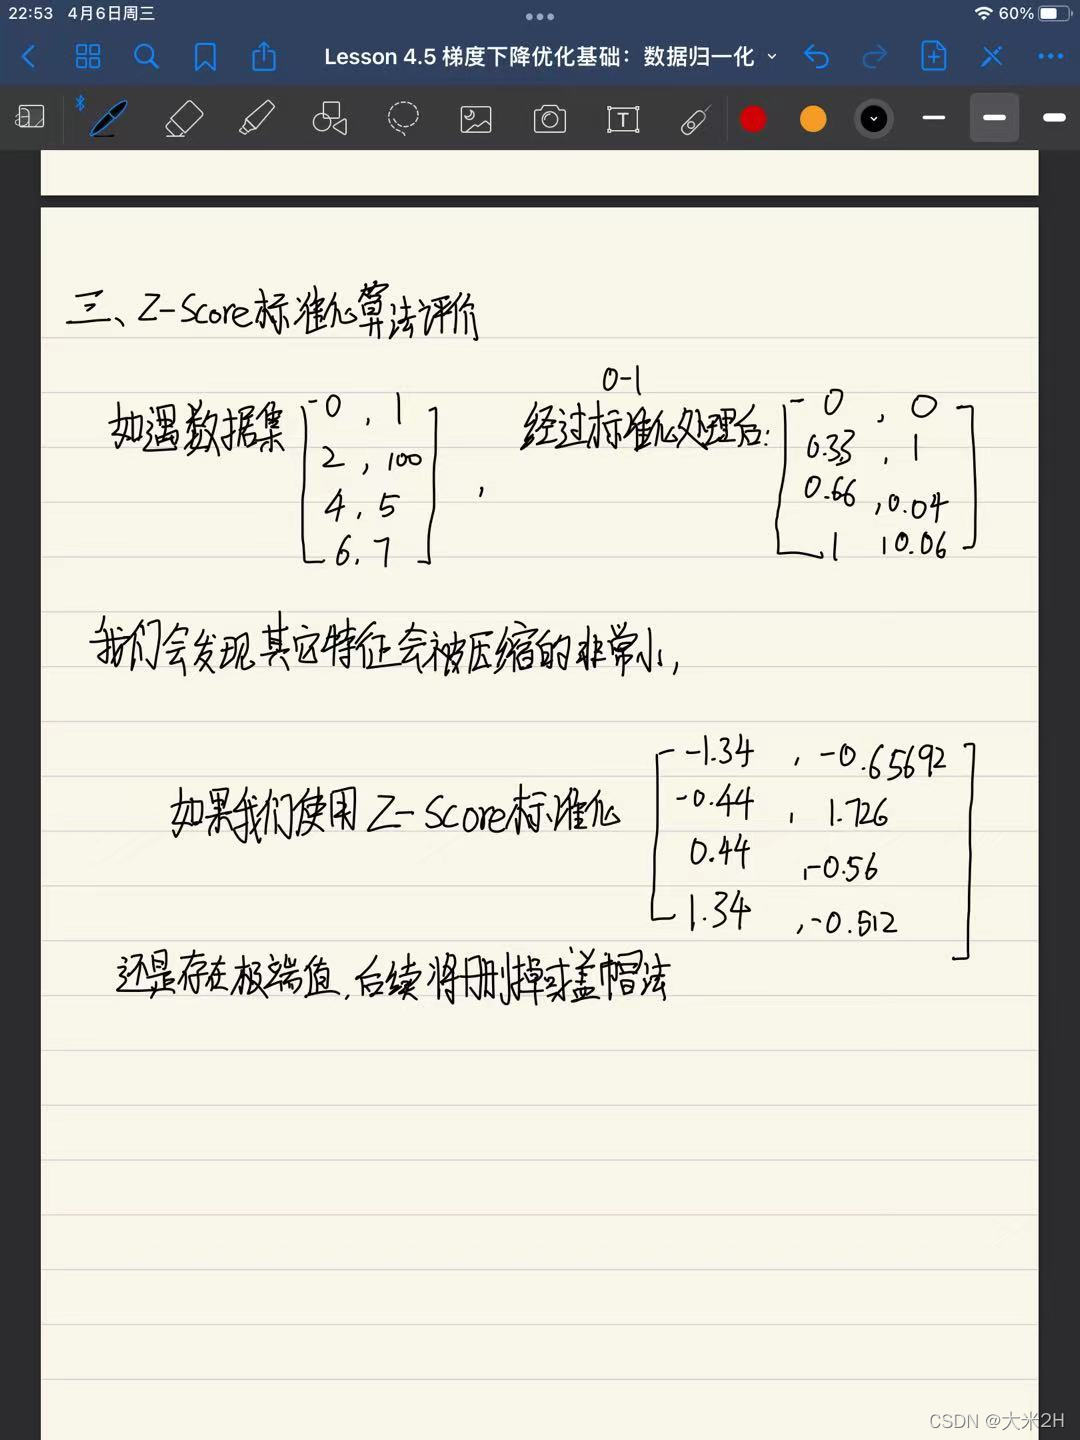 22:53 4月6日周三 60%
Lesson 4.5 梯度下降优化基础：数据归一化
三、Z-Score标准化算法评价
0-1
如遇数据集 [0, 1
2, 100
4, 5
6, 7] , 经过标准化处理后: [0, 0
0.33, 1
0.66, 0.04
1, 0.06]
我们会发现其它特征会被压缩的非常小,
如果我们使用Z-Score标准化 [-1.34, -0.65692
-0.44, 1.726
0.44, -0.56
1.34, -0.512]
还是存在极端值,后续将用删掉或盖帽法
CSDN @大米2H